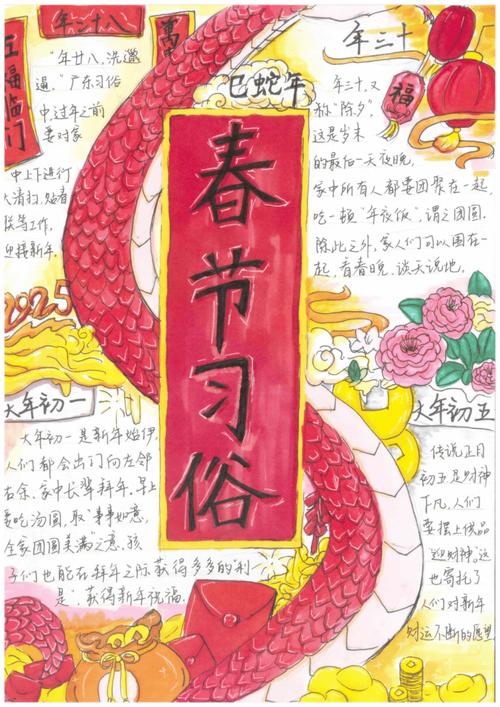 五福临门
年二十八
萬
"年廿八,洗邋
遢。"广东习俗
中过年之前
要对家
中上下进行
大清扫,贴春
联等工作,
迎接新年。
年三十
福
年三十,又
称"除夕"。
这是岁末
的最后一天夜晚,
家中所有人都要团聚在一起
吃一顿"年夜饭",谓之团圆。
除此之外,家人们可以围在一
起,看春晚、谈天说地。
巳蛇年
春节习俗
2025
大年初一
大年初一是新年始伊,
人们都会出门向左邻
右舍、家中长辈拜年。早上
要吃汤圆,取"事事如意,
全家团圆美满"之意。孩
子们也能在拜年之际获得多多的利
是",获得新年祝福.
大年初五
传说正月
初五是财神
下凡,人们
要摆上供品
迎财神。这
也寄托了
人们对新年
财运不断的愿望